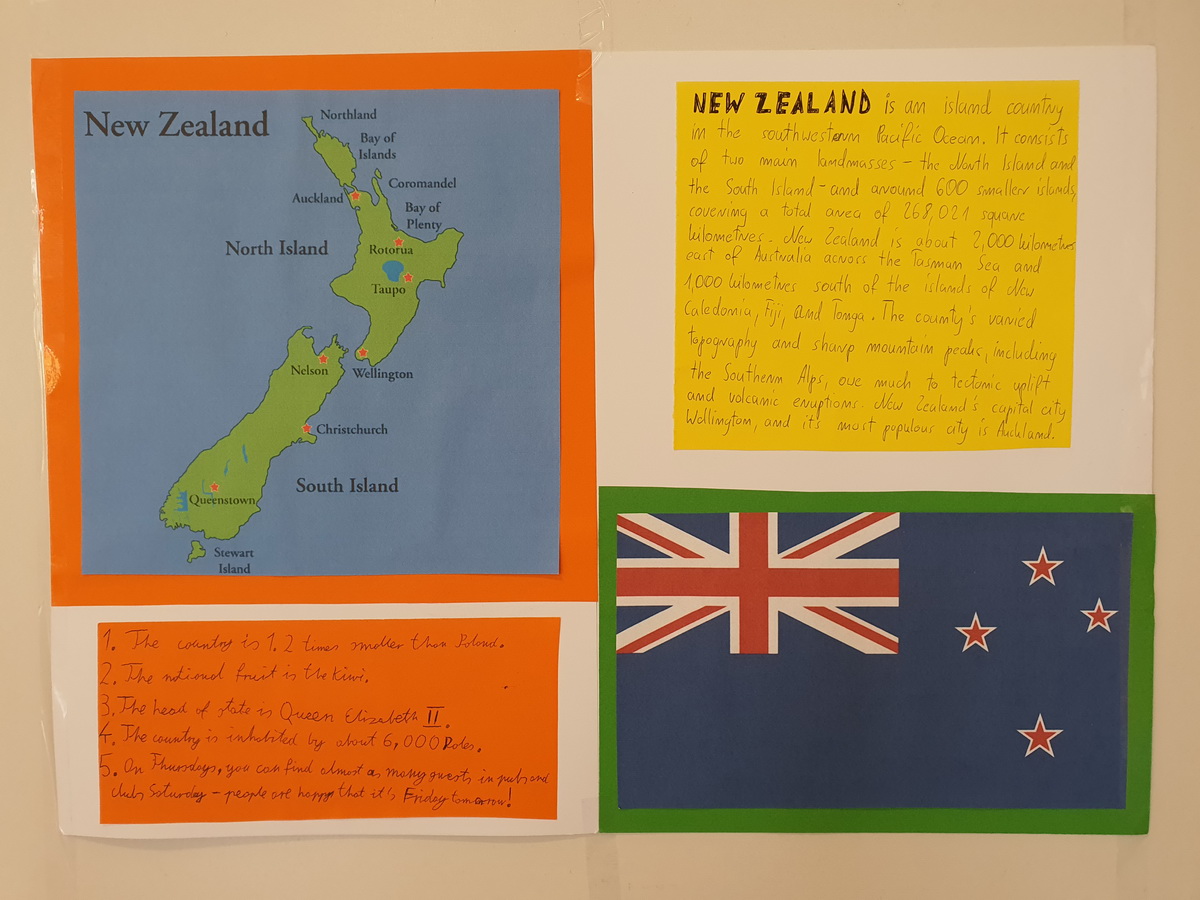 New Zealand
Northland
Bay of
Islands
Coromandel
Auckland
Bay of
Plenty
North Island
Rotorua
Taupo
Nelson
Wellington
Christchurch
South Island
Queenstown
Stewart
Island
NEW ZEALAND is an island country
in the southwestern Pacific Ocean. It consists
of two main landmasses - the North Island and
the South Island - and around 600 smaller islands,
covering a total area of 268,021 square
kilometres. New Zealand is about 2,000 kilometres
east of Australia across the Tasman Sea and
1,000 kilometres south of the islands of New
Caledonia, Fiji, and Tonga. The county's varied
topography and sharp mountain peaks, including
the Southern Alps, owe much to tectonic uplift
and volcanic eruptions. New Zealand's capital city
Wellington, and it's most populous city is Auckland.
1. The country is 1.2 times smaller than Poland.
2. The national fruit is the kiwi.
3. The head of state is Queen Elizabeth II.
4. The country is inhabited by about 6,000 Poles.
5. On Thursdays, you can find almost as many guests in pubs and
clubs Saturday - people are happy that it's Friday tomorrow!